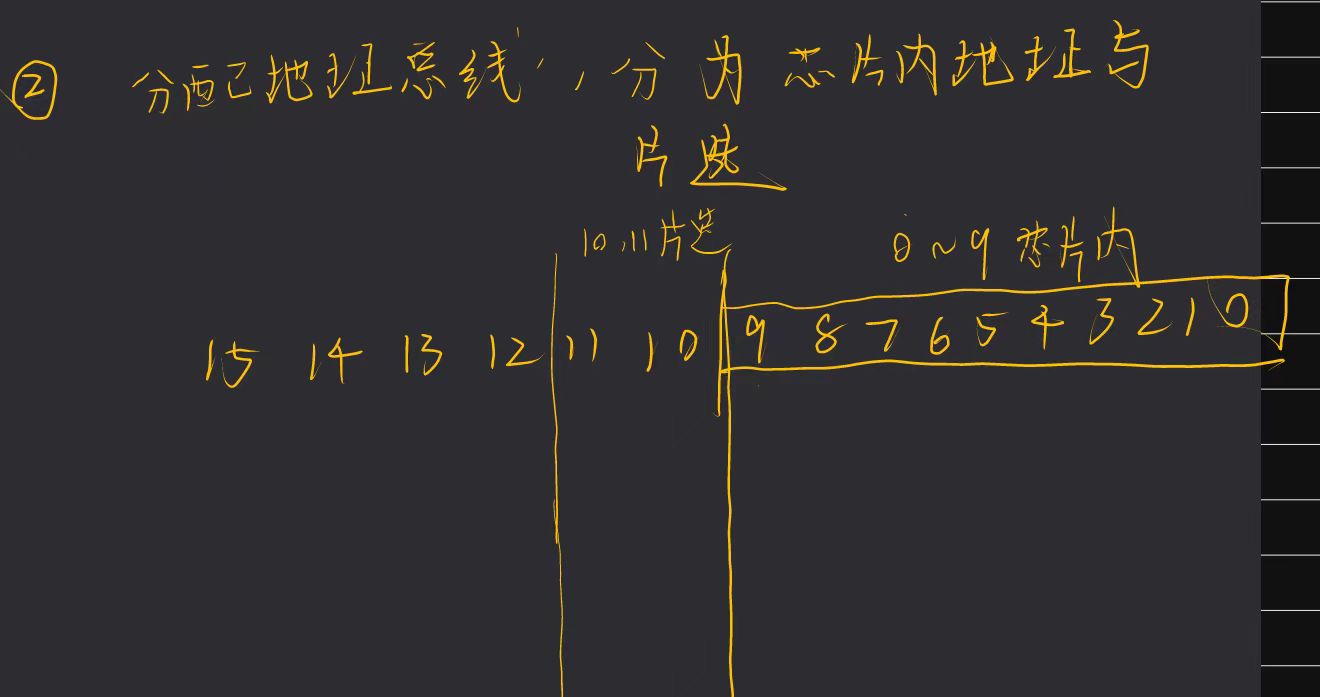 ② 分配地址总线，分为芯片内地址与
片选
10,11片选 0~9 芯片内
15 14 13 12 11 10 9 8 7 6 5 4 3 2 1 0